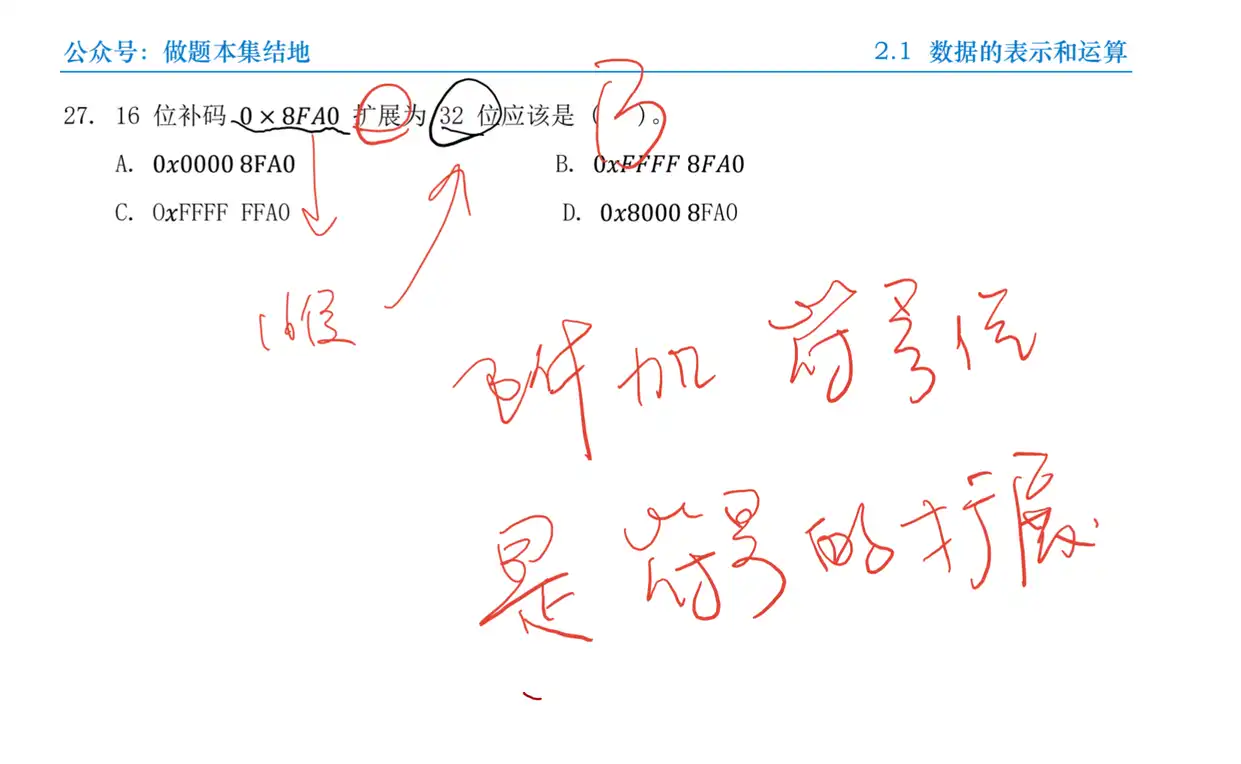 公众号：做题本集结地 2.1 数据的表示和运算
27. 16 位补码 0×8FA0 扩展为 32 位应该是（ B ）。
A. 0x0000 8FA0 B. 0xFFFF 8FA0
C. OxFFFF FFA0 D. 0x8000 8FA0
16位
附加 符号位
是 符号的扩展